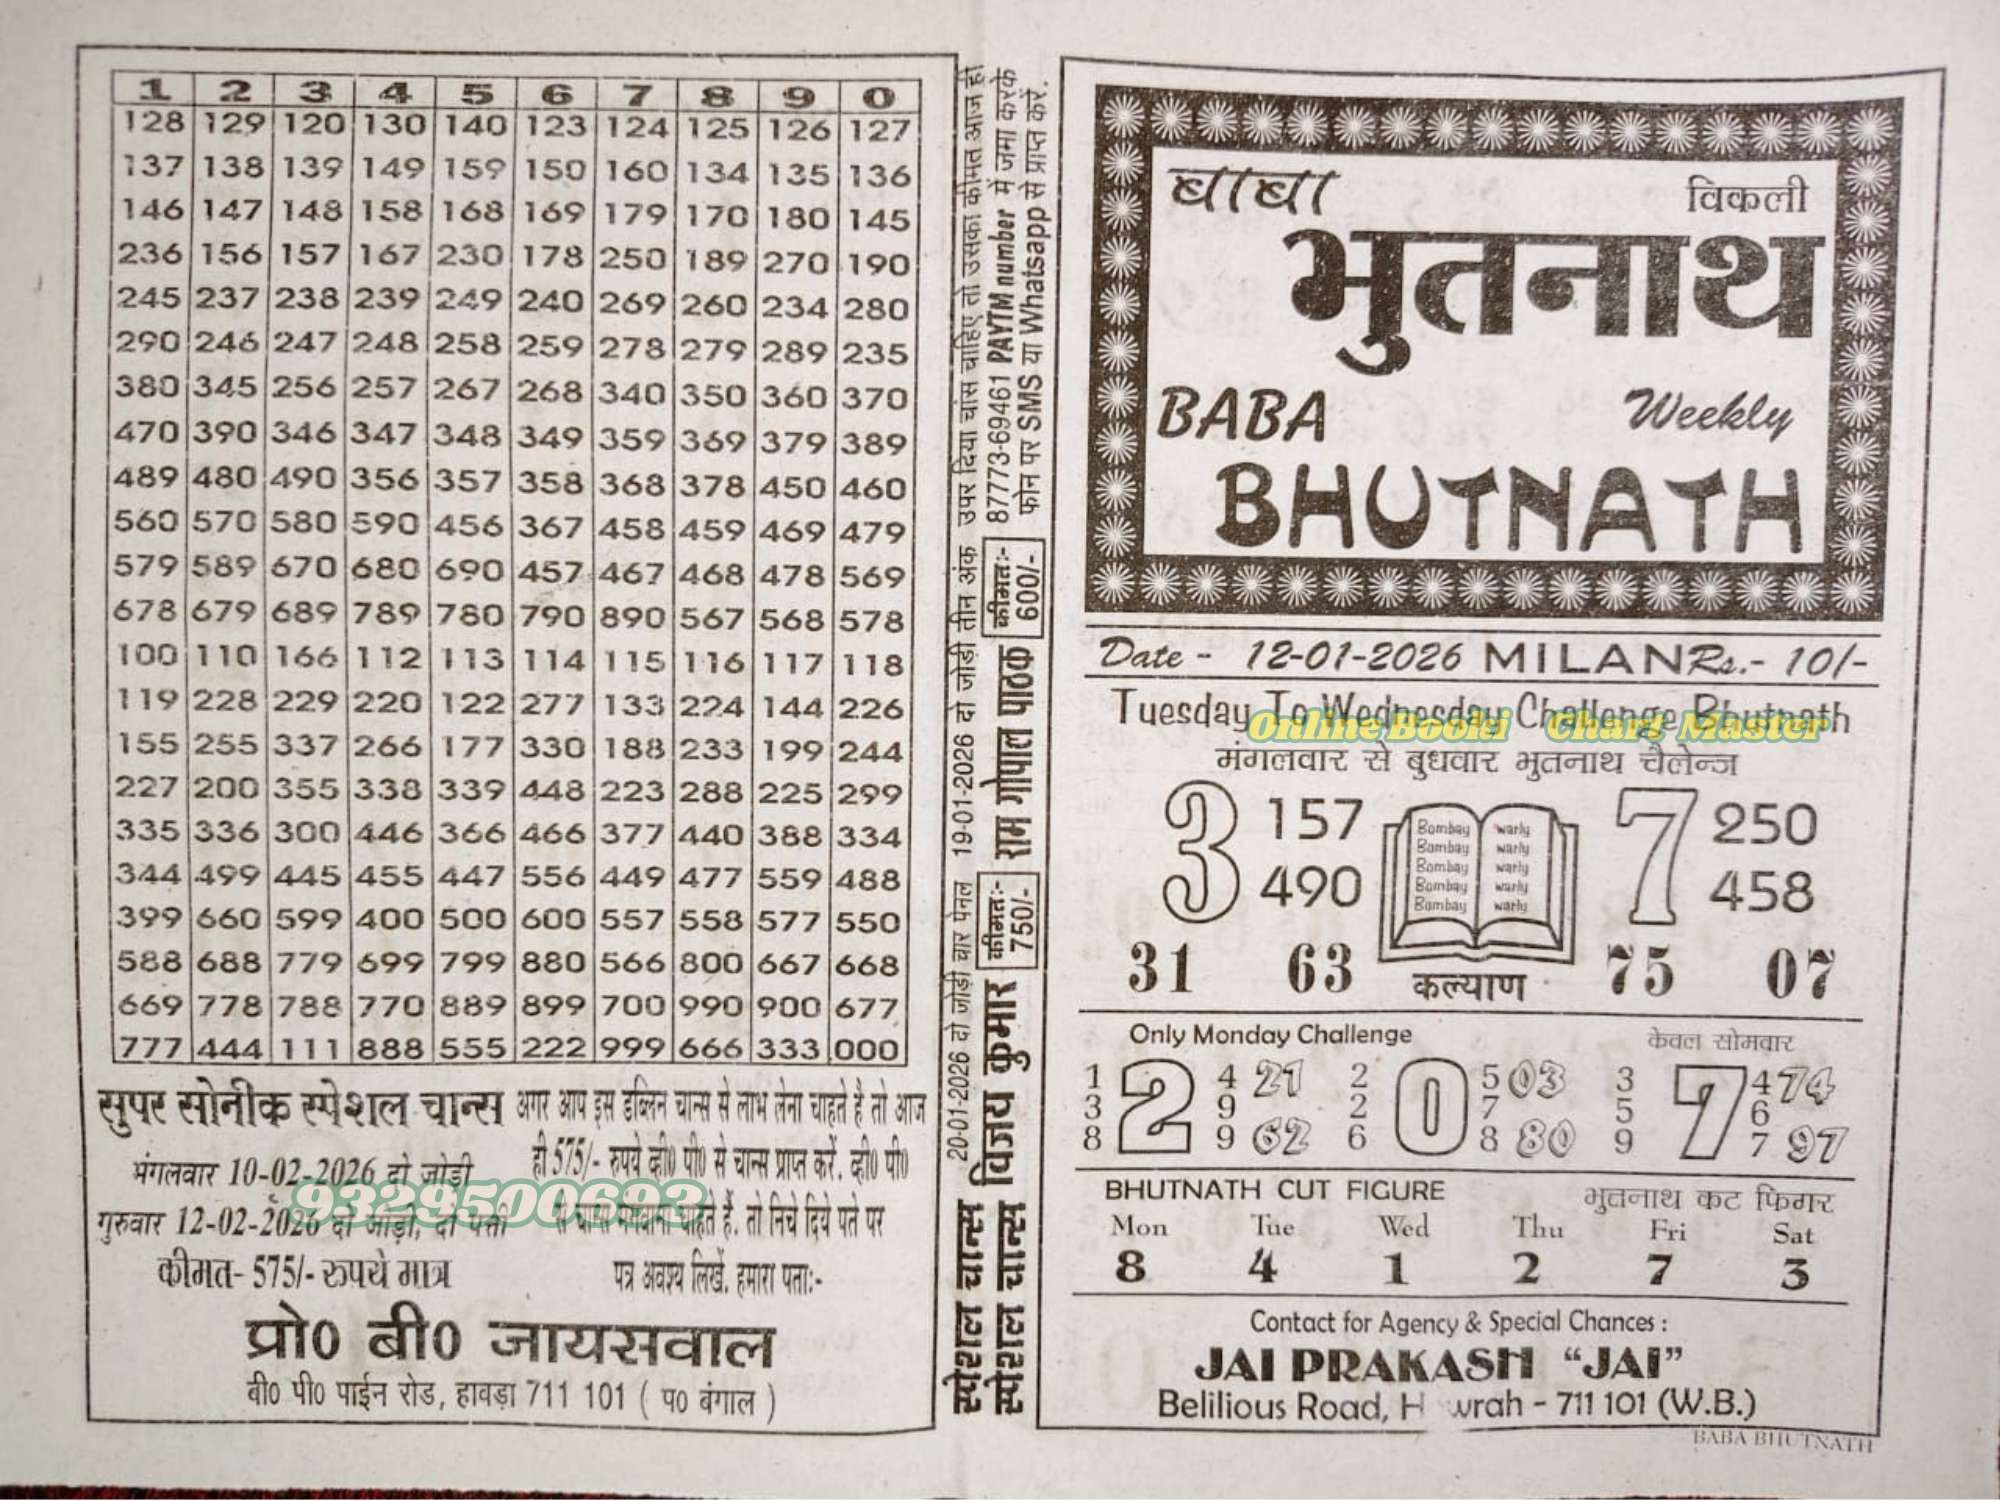 1 2 3 4 5 6 7 8 9 0
128 129 120 130 140 123 124 125 126 127
137 138 139 149 159 150 160 134 135 136
146 147 148 158 168 169 179 170 180 145
236 156 157 167 230 178 250 189 270 190
245 237 238 239 249 240 269 260 234 280
290 246 247 248 258 259 278 279 289 235
380 345 256 257 267 268 340 350 360 370
470 390 346 347 348 349 359 369 379 389
489 480 490 356 357 358 368 378 450 460
560 570 580 590 456 367 458 459 469 479
579 589 670 680 690 457 467 468 478 569
678 679 689 789 780 790 890 567 568 578
100 110 166 112 113 114 115 116 117 118
119 228 229 220 122 277 133 224 144 226
155 255 337 266 177 330 188 233 199 244
227 200 355 338 339 448 223 288 225 299
335 336 300 446 366 466 377 440 388 334
344 499 445 455 447 556 449 477 559 488
399 660 599 400 500 600 557 558 577 550
588 688 779 699 799 880 566 800 667 668
669 778 788 770 889 899 700 990 900 677
777 444 111 888 555 222 999 666 333 000
सुपर सोनीक स्पेशल चान्स
मंगलवार 10-02-2026 दो जोड़ी
गुरुवार 12-02-2026 दो जोड़ी, दो पत्ती
कीमत- 575/- रुपये मात्र
अगर आप इस डब्लिन चान्स से लाभ लेना चाहते है तो आज
ही 575/- रुपये व्ही0 पी0 से चान्स प्राप्त करें. व्ही0 पी0
से चान्स मंगवाना चाहते हैं. तो निचे दिये पते पर
पत्र अवश्य लिखें. हमारा पता:-
9329500693
प्रो0 बी0 जायसवाल
बी0 पी0 पाईन रोड, हावड़ा 711 101 ( प0 बंगाल )
स्पेशल चान्स 20-01-2026 दो जोड़ी चार पेनल 19-01-2026 दो जोड़ी तीन अंक उपर दिया चांस चाहिए तो उसका कीमत आज ही
स्पेशल चान्स विजय कुमार कीमतः- 750/- राम गोपाल पाठक कीमतः- 600/- 87773-69461 PAYTM number में जमा करके
फोन पर SMS या Whatsapp से प्राप्त करें.
बाबा विकली
भुतनाथ
BABA Weekly
BHUTNATH
Date - 12-01-2026 MILAN Rs.- 10/-
Tuesday To Wednesday Challenge Bhutnath
Online Booki Chart Master
मंगलवार से बुधवार भुतनाथ चैलेन्ज
3 157 7 250
490 458
Bombay warly
Bombay warly
Bombay warly
Bombay warly
Bombay warly
31 63 कल्याण 75 07
Only Monday Challenge केवल सोमवार
1 4 21 2 5 03 3 4 74
3 2 9 2 0 7 5 7 6
8 9 62 6 8 80 9 7 97
BHUTNATH CUT FIGURE भुतनाथ कट फिगर
Mon Tue Wed Thu Fri Sat
8 4 1 2 7 3
Contact for Agency & Special Chances :
JAI PRAKASH "JAI"
Belilious Road, H wrah - 711 101 (W.B.)
BABA BHUTNATH